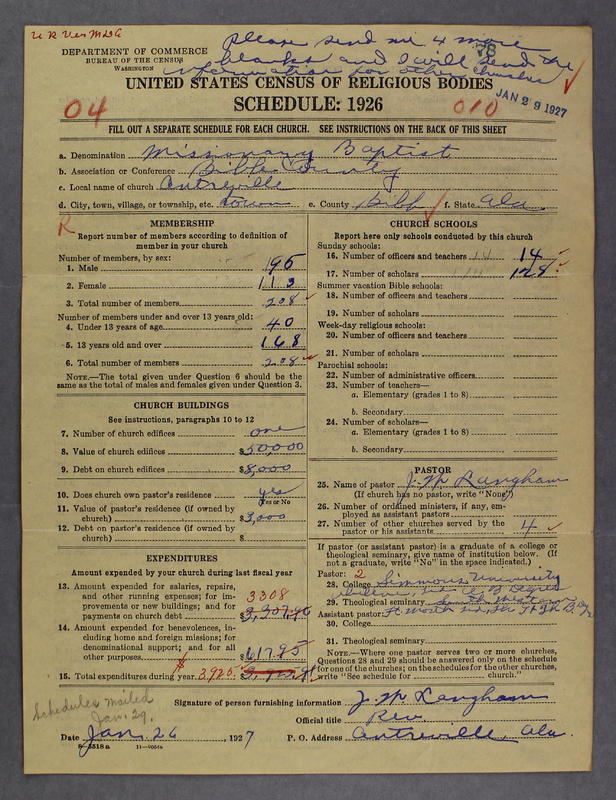 DEPARTMENT OF COMMERCE
BUREAU OF THE CENSUS
WASHINGTON
Please send me 4 more
blanks and I will send the
information for other churches
78
JAN 29 1927
UNITED STATES CENSUS OF RELIGIOUS BODIES
SCHEDULE: 1926
04
010
FILL OUT A SEPARATE SCHEDULE FOR EACH CHURCH. SEE INSTRUCTIONS ON THE BACK OF THIS SHEET
a. Denomination Missionary Baptist
b. Association or Conference Bibb County
c. Local name of church Centreville
d. City, town, village, or township, etc. town e. County Bibb f. State Ala.
R
MEMBERSHIP
Report number of members according to definition of
member in your church
Number of members, by sex:
1. Male 95
2. Female 113
3. Total number of members 208
Number of members under and over 13 years old:
4. Under 13 years of age 40
5. 13 years old and over 168
6. Total number of members 208
NOTE.—The total given under Question 6 should be the
same as the total of males and females given under Question 3.
CHURCH BUILDINGS
See instructions, paragraphs 10 to 12
7. Number of church edifices one
8. Value of church edifices $50,000
9. Debt on church edifices $8,000
10. Does church own pastor's residence yes
Yes or No
11. Value of pastor's residence (if owned by
church) $3,000
12. Debt on pastor's residence (if owned by
church) $
EXPENDITURES
Amount expended by your church during last fiscal year
13. Amount expended for salaries, repairs,
and other running expenses; for im-
provements or new buildings; and for
payments on church debt 3308
14. Amount expended for benevolences, in-
cluding home and foreign missions; for
denominational support; and for all
other purposes 617.95
15. Total expenditures during year $ 3,925
CHURCH SCHOOLS
Report here only schools conducted by this church
Sunday schools:
16. Number of officers and teachers 14 14
17. Number of scholars 128
Summer vacation Bible schools:
18. Number of officers and teachers
19. Number of scholars
Week-day religious schools:
20. Number of officers and teachers
21. Number of scholars
Parochial schools:
22. Number of administrative officers
23. Number of teachers—
a. Elementary (grades 1 to 8)
b. Secondary
24. Number of scholars—
a. Elementary (grades 1 to 8)
b. Secondary
PASTOR
25. Name of pastor J. M. Langham
(If church has no pastor, write "None")
26. Number of ordained ministers, if any, em-
ployed as assistant pastors
27. Number of other churches served by the
pastor or his assistants 4
If pastor (or assistant pastor) is a graduate of a college or
theological seminary, give name of institution below. (If
not a graduate, write "No" in the space indicated.)
Pastor: 2
28. College Simmons University
29. Theological seminary South Western
Assistant pastor: Ft Worth
30. College
31. Theological seminary
NOTE.—Where one pastor serves two or more churches,
Questions 28 and 29 should be answered only on the schedule
for one of the churches; on the schedules for the other churches,
write "See schedule for church."
Schedules mailed
Jan. 29.
Signature of person furnishing information J. M. Langham
Official title Rev
Date Jan. 26, 1927 P. O. Address Centreville, Ala.
8-5518a 11-9054a